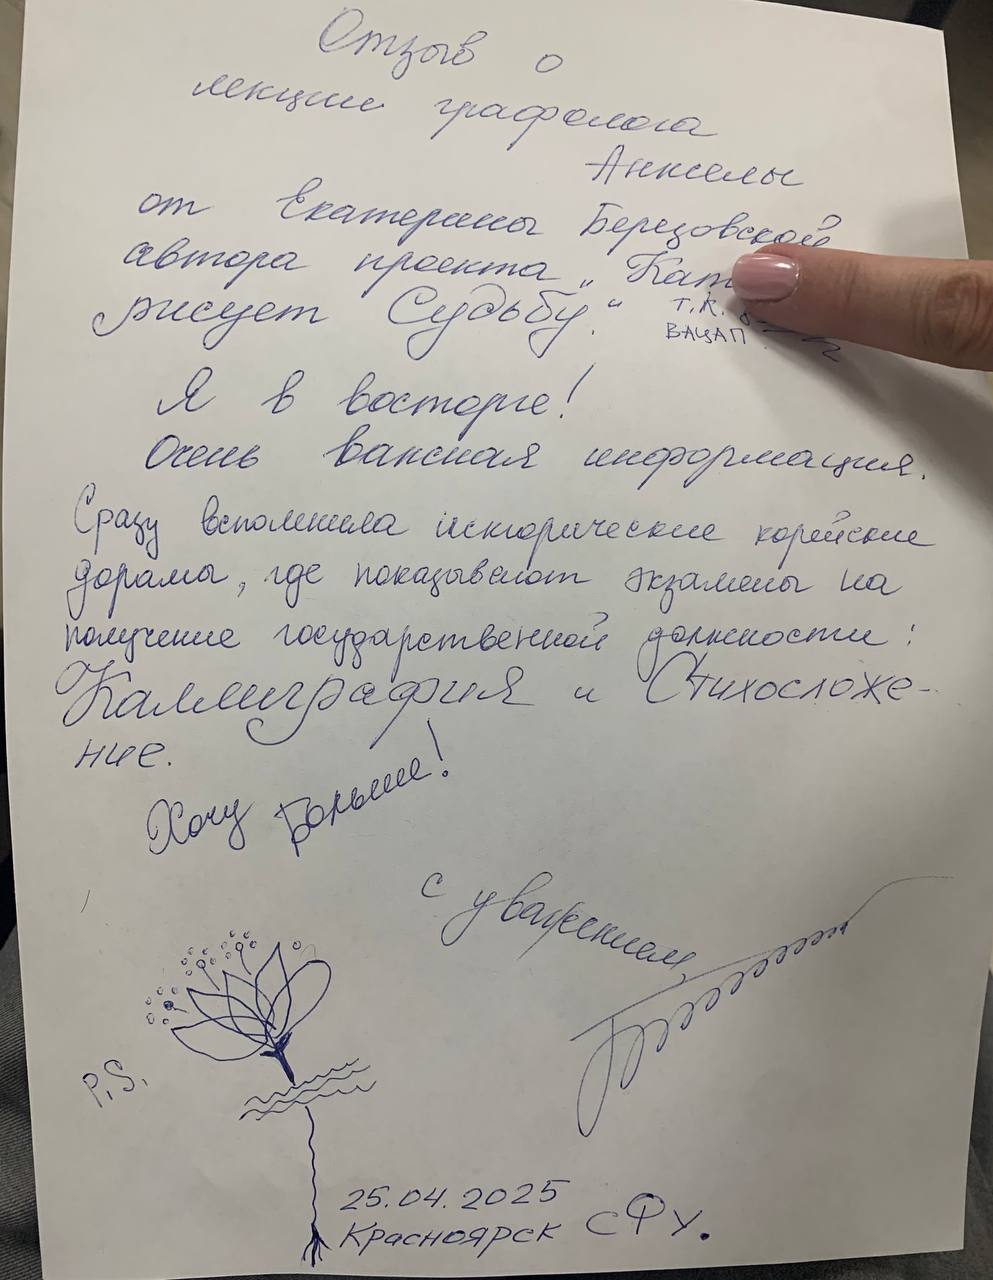 Отзыв о
лекции графолога
Анжелы
от Екатерины Березовской
автора проекта „Кат
рисует Судьбу."
т.к.
ВАЦАП
Я в восторге!
Очень важная информация.
Сразу вспомнила исторические корейские
дорамы, где показывают экзамены на
получение государственной должности:
Каллиграфия и Стихосложе-
ние.
Хочу Больше!
с уважением,
P.S.
25.04.2025
Красноярск СФУ.